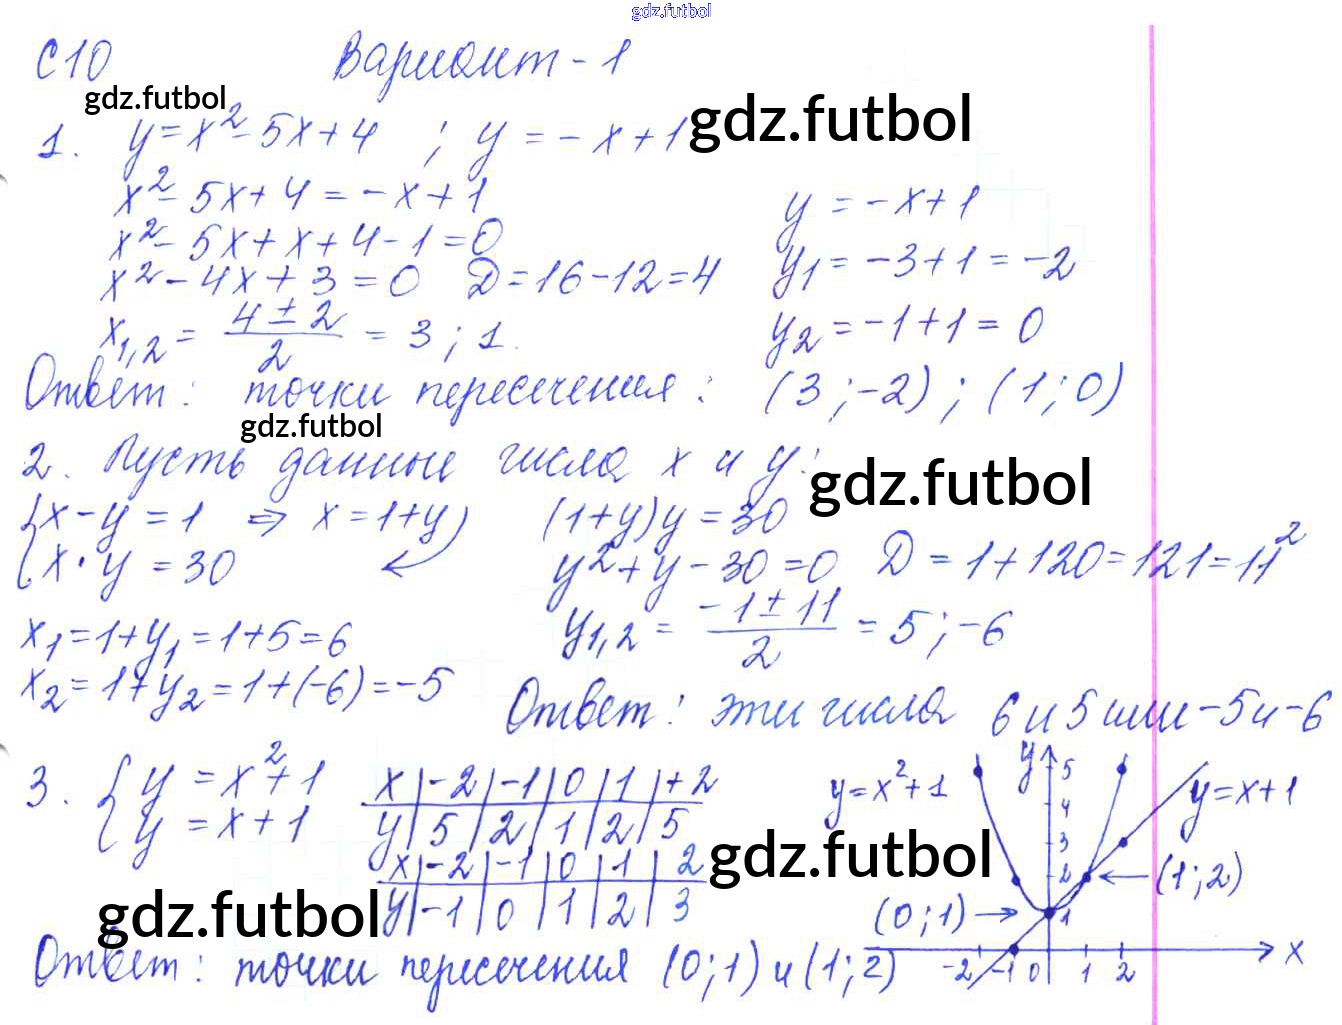 gdz.futbol
С10 Вариант - 1
gdz.futbol
1. y = x² - 5x + 4 ; y = - x + 1
gdz.futbol
x² - 5x + 4 = - x + 1
x² - 5x + x + 4 - 1 = 0
x² - 4x + 3 = 0 D = 16 - 12 = 4
x1,2 = (4 ± 2)/2 = 3 ; 1.
y = - x + 1
y1 = - 3 + 1 = - 2
y2 = - 1 + 1 = 0
Ответ: точки пересечения: (3 ; -2) ; (1 ; 0)
gdz.futbol
2. Пусть данные числа x и y:
gdz.futbol
{ x - y = 1 ⇒ x = 1 + y
{ x · y = 30
(1 + y) y = 30
y² + y - 30 = 0 D = 1 + 120 = 121 = 11²
y1,2 = (-1 ± 11)/2 = 5 ; -6
x1 = 1 + y1 = 1 + 5 = 6
x2 = 1 + y2 = 1 + (-6) = -5
Ответ: эти числа 6 и 5 или -5 и -6
3. { y = x² + 1
{ y = x + 1
x | -2 | -1 | 0 | 1 | +2
y | 5 | 2 | 1 | 2 | 5
x | -2 | -1 | 0 | 1 | 2
y | -1 | 0 | 1 | 2 | 3
gdz.futbol
gdz.futbol
y = x² + 1
y
5
4
3
2
1
y = x + 1
(1 ; 2)
(0 ; 1)
-2 -1 0 1 2 x
Ответ: точки пересечения (0 ; 1) и (1 ; 2)